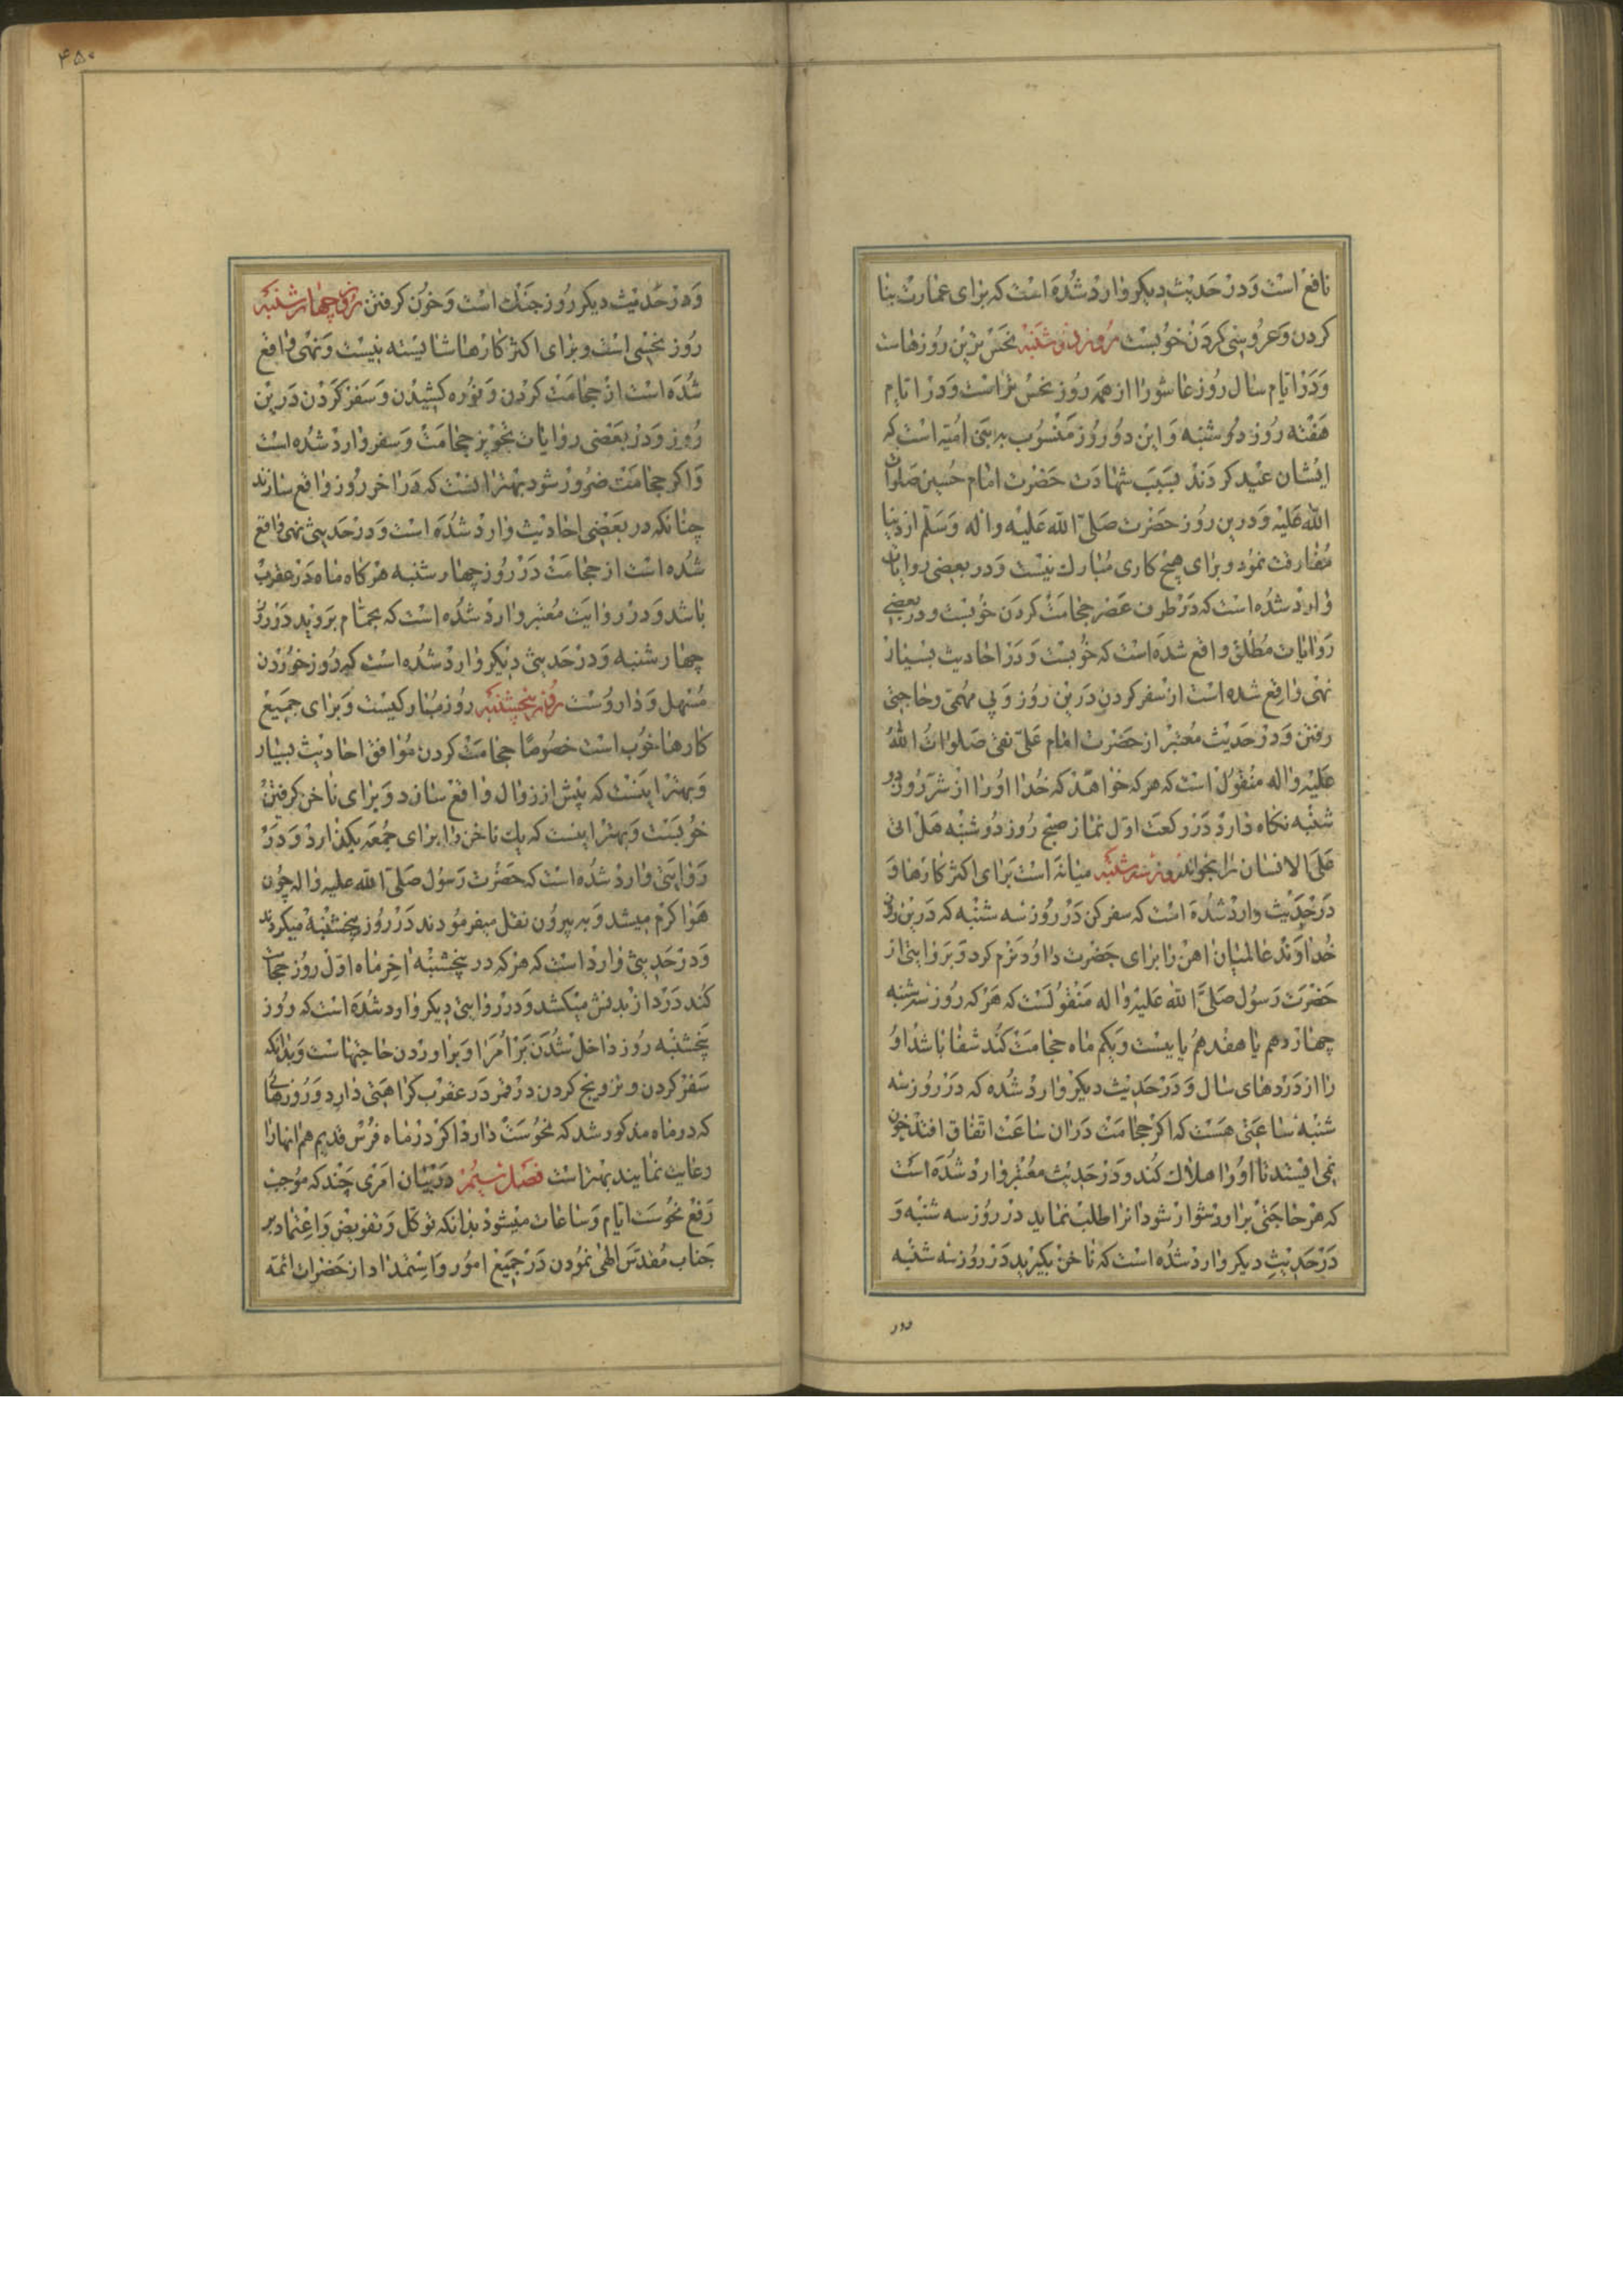 نافع است و در حدیث دیکر وارد شده است که برای عمارت بنا
کردن و عروسی کردن خوبست روز دوشنبه نحس ترین روزهاست
و در ایام سال روز عاشورا از همه روز نحس تر است و در ایام
هفته روز دوشنبه و این دو روز منسوب به بنی امیه است که
ایشان عید کردند بسبب شهادت حضرت امام حسین صلوات
الله علیه و درین روز حضرت صلی الله علیه و اله وسلم از دنیا
مفارقت نمود و برای هیچ کاری مبارک نیست و در بعضی روایات
وارد شده است که در طرف عصر حجامت کردن خوبست و در بعضی
روایات مطلق واقع شده است که خوبست و در احادیث بسیار
نهی واقع شده است از سفر کردن درین روز و پی مهمی و حاجتی
رفتن و در حدیث معتبر از حضرت امام علی نقی صلوات الله
علیه و اله منقول است که هر که خواهد که خدا او را از شر روز دو
شنبه نکاه دارد در رکعت اول نماز صبح روز دوشنبه هل اتی
علی الانسان را بخواند روز سه شنبه میانه است برای اکثر کارها و
در حدیث وارد شده است که سفر کن در روز سه شنبه که درین روز
خداوند عالمیان اهن را برای حضرت داود نرم کرد و بروایتی از
حضرت رسول صلی الله علیه و اله منقولست که هر که روز سه شنبه
چهاردهم یا هفدهم یا بیست و یکم ماه حجامت کند شفا باشد او
را از دردهای سال و در حدیث دیکر وارد شده که در روز سه
شنبه ساعتی هست که اکر حجامت در ان ساعت اتفاق افتد خون
نمی ایستد تا او را هلاک کند و در حدیث معتبر وارد شده است
که هر حاجتی بر او دشوار شود انرا طلب نماید در روز سه شنبه و
در حدیث دیکر وارد شده است که ناخن بکیرید در روز سه شنبه
۴۵۰
و در حدیث دیکر روز جنک است و خون کرفتن روز چهارشنبه
روز نحسی است و برای اکثر کارها شایسته نیست و نهی واقع
شده است از حجامت کردن و نوره کشیدن و سفر کردن درین
روز و در بعضی روایات تجویز حجامت و سفر وارد شده است
و اکر حجامت ضرور شود بهتر انست که در اخر روز واقع سازند
چنانکه در بعضی احادیث وارد شده است و در حدیثی نهی واقع
شده است از حجامت در روز چهارشنبه هر کاه ماه در عقرب
باشد و در روایت معتبر وارد شده است که بحمام بروید در روز
چهارشنبه و در حدیثی دیکر وارد شده است که روز خوردن
مسهل و داروست روز پنجشنبه روز مبارکیست و برای جمیع
کارها خوب است خصوصا حجامت کردن موافق احادیث بسیار
و بهتر اینست که پیش از زوال واقع سازد و برای ناخن کرفتن
خوبست و بهتر اینست که یک ناخن را برای جمعه بکذارد و در
روایتی وارد شده است که حضرت رسول صلی الله علیه و اله چون
هوا کرم میشد و به بیرون نقل میفرمودند در روز پنجشنبه میکردند
و در حدیثی وارد است که هر که در پنجشنبه اخر ماه اول روز حجامت
کند درد از بدنش میکشد و در روایتی دیکر وارد شده است که روز
پنجشنبه روز داخل شدن بر امرا و براوردن حاجتهاست و بدانکه
سفر کردن و تزویج کردن در قمر در عقرب کراهتی دارد و روزهائی
که در ماه مذکور شد که نحوست دارد اکر در ماه فرس قدیم هم انها را
رعایت نمایند بهتر است فصل سیم در بیان امری چند که موجب
رفع نحوست ایام و ساعات میشود بدانکه توکل و تفویض و اعتماد بر
جناب مقدس الهی نمودن در جمیع امور و استمداد از حضرات ائمه